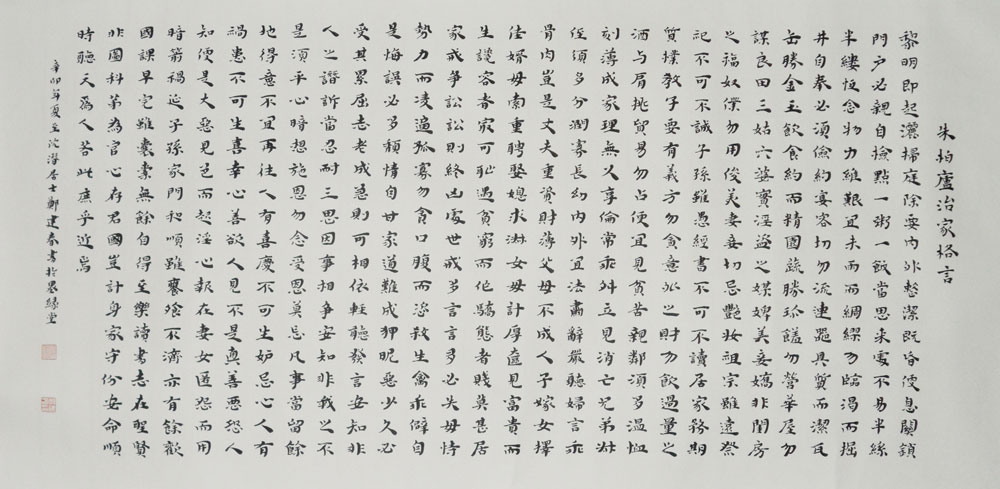 朱柏廬治家格言
黎明即起灑掃庭除要內外整潔既昏便息關鎖
門戶必親自撿點一粥一飯當思來處不易半絲
半縷恆念物力維艱宜未雨而綢繆勿臨渴而掘
井自奉必須儉約宴客切勿流連器具質而潔瓦
缶勝金玉飲食約而精園蔬勝珍饈勿營華屋勿
謀良田三姑六婆實淫盜之媒婢美妾嬌非閨房
之福奴僕勿用俊美妻妾切忌艷妝祖宗雖遠祭
祀不可不誠子孫雖愚經書不可不讀居家務期
質樸教子要有義方勿貪意外之財勿飲過量之
酒与肩挑貿易勿占便宜見貧苦親鄰須多溫恤
刻薄成家理無久享倫常乖舛立見消亡兄弟叔
侄須多分潤寡長幼內外宜法肅辭嚴聽婦言乖
骨肉豈是丈夫重資財薄父母不成人子嫁女擇
佳婿毋索重聘娶媳求淑女毋計厚奩見富貴而
生諂容者最可恥遇貧窮而作驕態者賤莫甚居
家戒爭訟訟則終凶處世戒多言言多必失毋恃
勢力而凌逼孤寡勿貪口腹而恣殺生禽乖僻自
是悔誤必多頹惰自甘家道難成狎昵惡少久必
受其累屈志老成急則可相依輕聽發言安知非
人之譖訴當忍耐三思因事相爭安知非我之不
是須平心暗想施恩勿念受恩莫忘凡事當留餘
地得意不宜再往人有喜慶不可生妒忌心人有
禍患不可生喜幸心善欲人見不是真善惡恐人
知便是大惡見色而起淫心報在妻女匿怨而用
暗箭禍延子孫家門和順雖饔飧不濟亦有餘歡
國課早完雖囊橐無餘自得至樂讀書志在聖賢
非圖科第為官心存君國豈計身家守份安命順
時聽天為人若此庶乎近焉
辛卯年夏至沈潛居士鄭建春書於墨緣堂